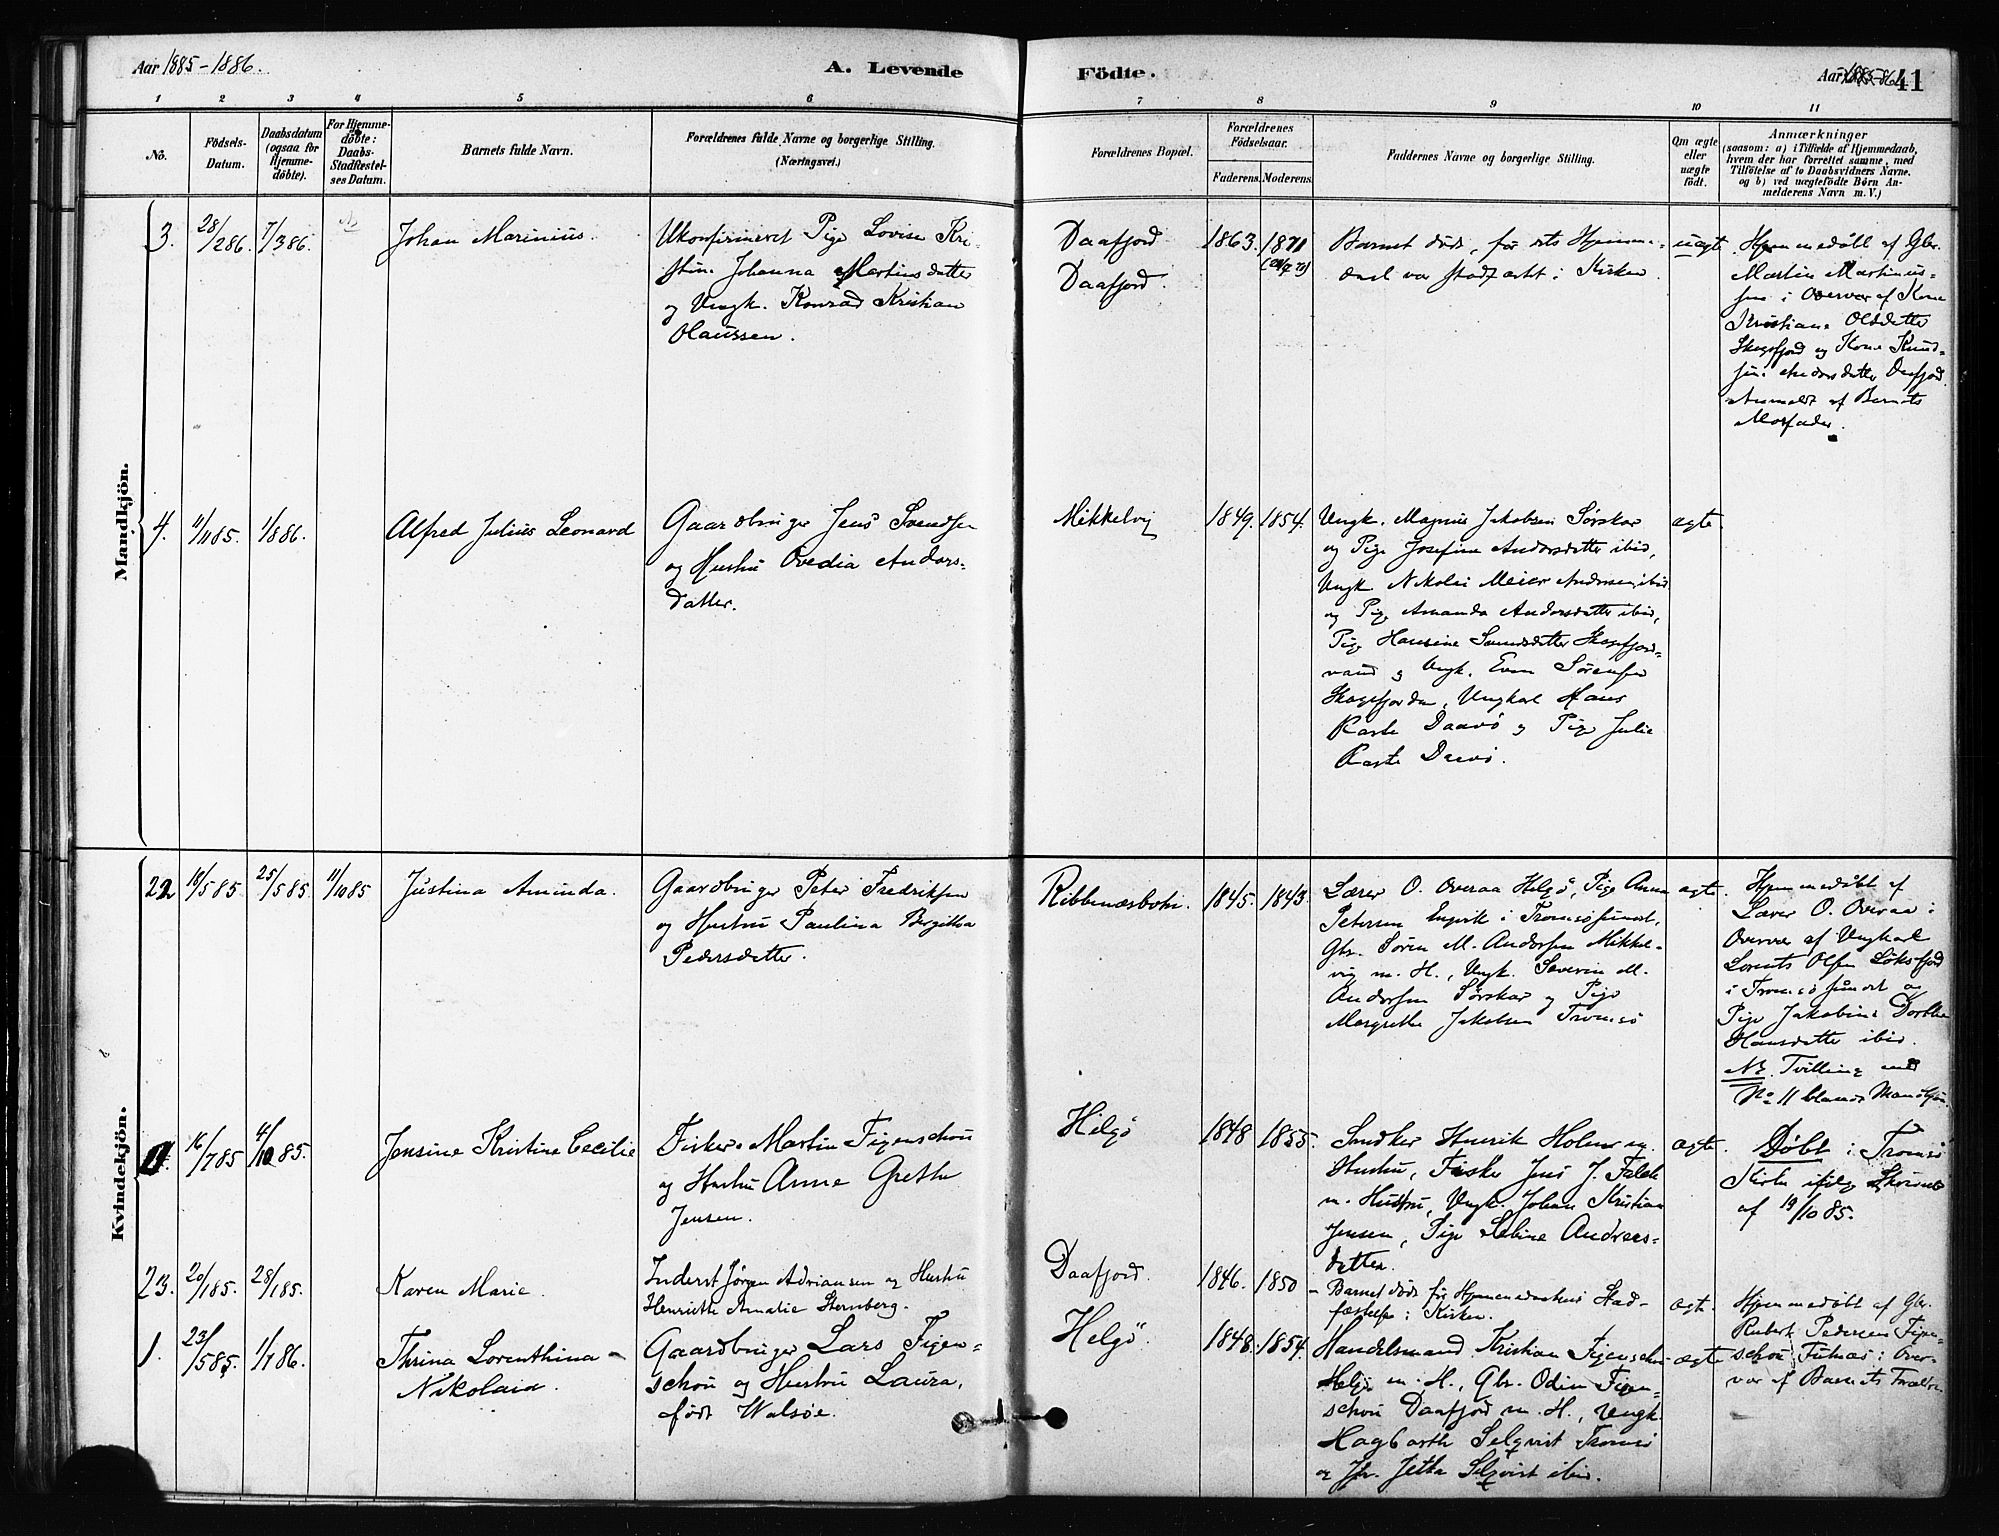 Aar 1885-1886.
A. Levende
Födte.
Aar 1885-86
41
1
2
3
4
5
6
7
8
9
10
11
No.
Födsels-
Datum.
Daabsdatum
(ogsaa for
Hjemme-
döbte).
For Hjemme-
döbte:
Daabs-
Stadfæstel-
ses Datum.
Barnets fulde Navn.
Forældrenes fulde Navne og borgerlige Stilling.
(Næringsvei.)
Forældrenes Bopæl.
Forældrenes
Födselsaar.
Faderens.
Moderens.
Faddernes Navne og borgerlige Stilling.
Om ægte
eller
uægte
födt.
Anmærkninger
(saasom: a) i Tilfælde af Hjemmedaab,
hvem der har forrettet samme, med
Tilföielse af to Daabsvidners Navne.
og b) ved uægtefödte Börn An-
melderens Navn m. V.)
Mandkjön.
3.
28/286.
7/386.
Johan Marinius.
Ukonfirmeret Pige Lovise Kri-
stine Johanna Martinsdatter
og Ungk. Konrad Kristian
Olaussen.
Daafjord
Daafjord.
1863.
1871
Barnet døde, før dets Hjemme-
daab var stadfæstet i Kirken.
uægte
Hjemmedøbt af Gbr.
Martin Martinus-
sen i Overvær af Kone
Kristiane Olsdatter
Skogsfjord og Kone Knud-
sine Andersdatter Daafjord
Anmeldt af Barnets
Morfader.
4.
11/1185.
1/886.
Alfred Julius Leonard
Gaardbruger Jens Svendsen
og Hustru Ovedia Anders-
datter.
Mikkelvig
1849.
1854.
Ungk. Magnus Jakobsen Sørskar
og Pige Josefine Andersdatter ibid,
Ungk. Nikolai Meier Andersen ibid
og Pige Amanda Andersdatter ibid,
Pige Hansine Svendsdatter Skogsfjord-
vand og Ungk. Even Sørensen
Skogsfjorden, Ungkarl Hans
Raste Daavø og Pige Julie
Raste Daavø.
ægte.
Kvindekjön.
22
19/585.
25/585.
11/1085
Justina Aminda.
Gaardbruger Peter Fredriksen
og Hustru Paulina Birgitha
Pedersdatter.
Ribbenæsbotn.
1845.
1843.
Lærer O. Overaa Helgø, Pige Anna
Petersen Engvik i Tromsøsundet,
Gbr. Søren M. Andersen Mikkel-
vig m. H., Ungk. Severin M.
Andersen Sørskar og Pige
Margrethe Jakobsen Tromsø
ægte.
Hjemmedøbt af
Lærer O. Overaa i
Overvær af Ungkarl
Lorents Olsen Løksfjord
i Tromsøsundet og
Pige Jakobine Dorthea
Hansdatter ibid.
NB. Tvilling med
No 11 blandt Mandkjøn.
16/785
4/1085.
Jensine Kristine Cecilie
Fisker Martin Figenschou
og Hustru Anne Grethe
Jensen.
Helgø
1848
1855.
Smed Henrik Holm m.
Hustru, Fisker Jens J. Falch
m. Hustru, Ungk. Johan Kristian
Jensen, Pige Sabine Andreas-
datter.
ægte.
Døbt i Tromsø
Kirke ifølge Skrivelse
af 19/1085.
23.
20/185.
28/185.
Karen Marie.
Inderst Jørgen Adriansen og Hustru
Henriette Amalie Sternberg.
Daafjord.
1846.
1850
- Barnet døde før Hjemmedaabens Stad-
fæstelse i Kirken.
ægte.
1.
23/585.
1/186.
Thrina Lorenthina
Nikolaia.
Gaardbruger Lars Figen-
schou og Hustru Laura,
født Walsøe.
Helgø.
1848.
1854.
Handelsmand Kristian Figenschou
Helgø m. H., Gbr. Odin Figen-
schou Daafjord m. H., Ungk.
Hagbarth Selqvist Tromsø
og Jfr. Jetta Selqvist ibid.
ægte
Hjemmedøbt af Gbr.
Rubert Pedersen Figen-
schou Futnæs i Over-
vær af Barnets Forældre.